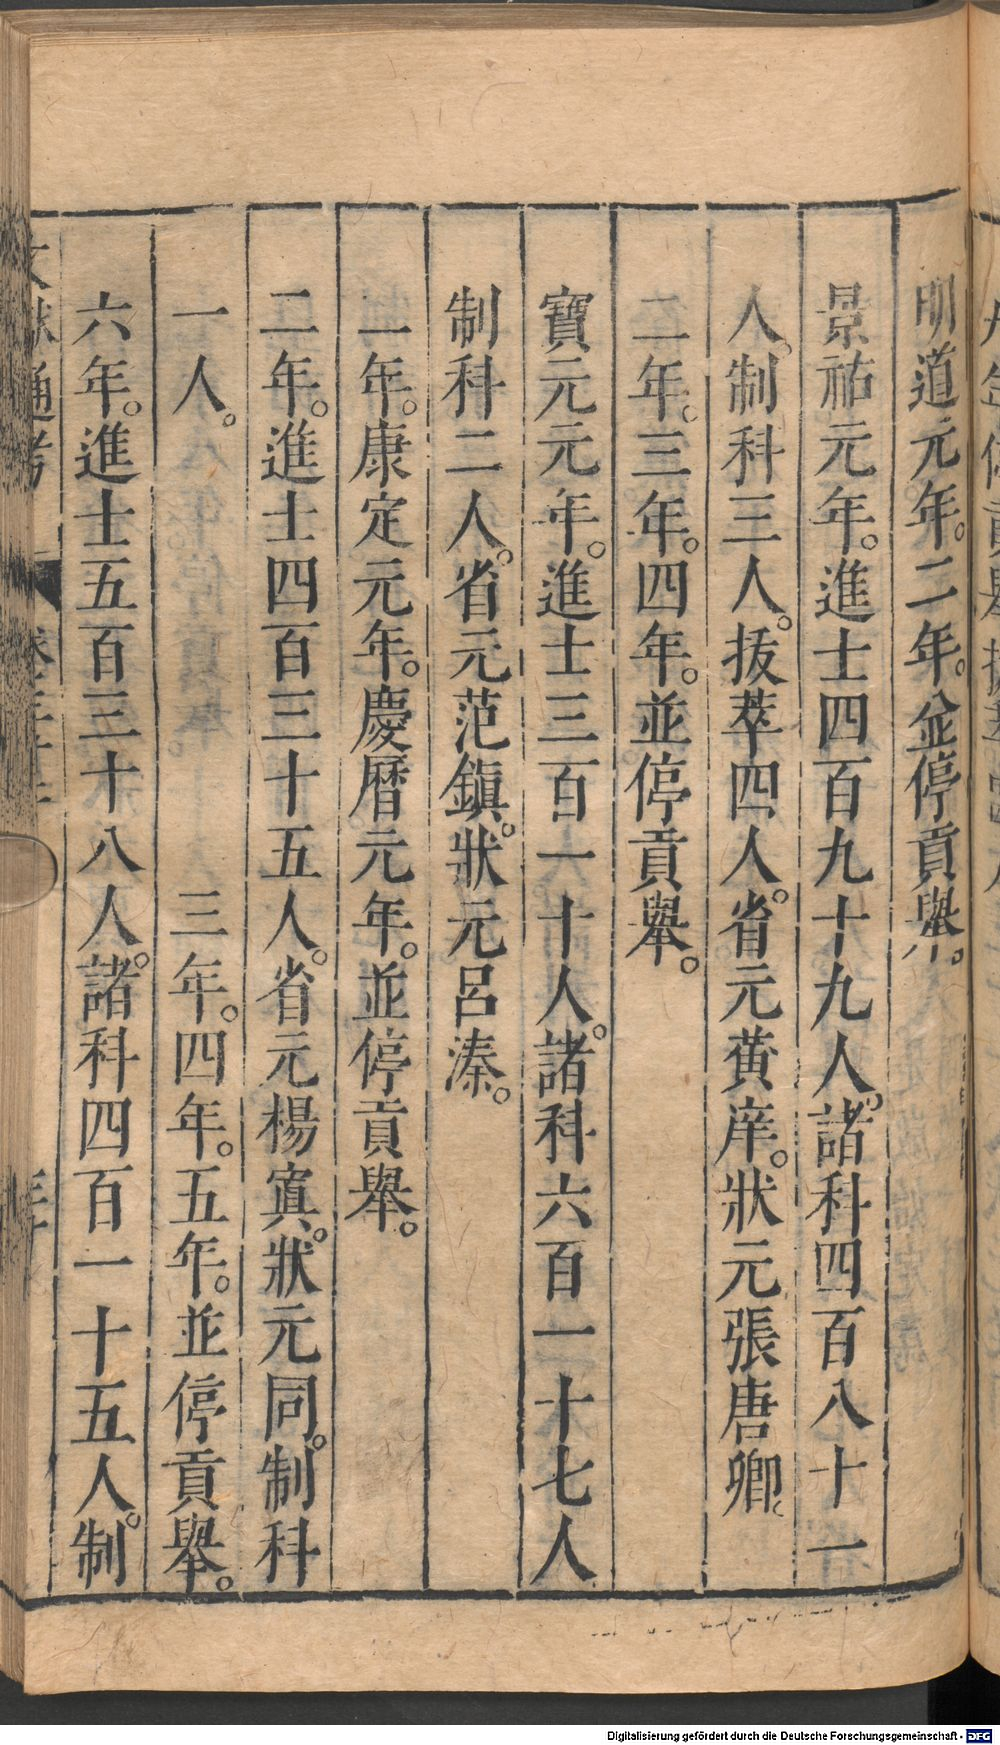 明道元年。二年。並停貢舉。
景祐元年。進士四百九十九人。諸科四百八十一
人。制科三人。拔萃四人。省元黄庠。狀元張唐卿。
二年。三年。四年。並停貢舉。
寶元元年。進士三百一十人。諸科六百一十七人
制科二人。省元范鎮。狀元呂溱。
二年。康定元年。慶曆元年。並停貢舉。
二年。進士四百三十五人。省元楊寘。狀元同。制科
一人。 三年。四年。五年。並停貢舉。
六年。進士五百三十八人。諸科四百一十五人。制
文獻通考
Digitalisierung gefördert durch die Deutsche Forschungsgemeinschaft - DFG